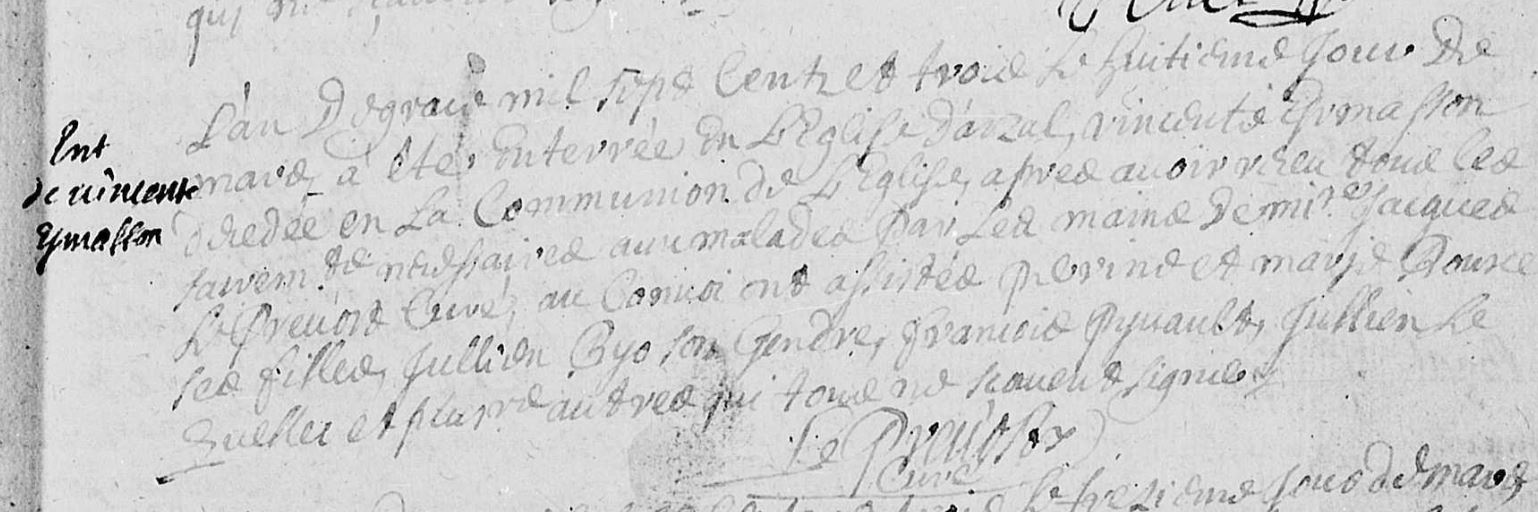 Ent
de vincente
Eymasson
L'an De grace mil sept Cents et trois Le huitieme Jour De
mars, a eté enterrée en L'Eglise d'arzal, vincente Eymasson
decedée en La Communion de L'Eglise, apres auoir receu tous les
sacrem.ts necessaires aux malades par Les mains de mi.re Jacques
Le Preuost Curé, au Conuoi ont assistés perrine et marie
ses filles, Jullien son Gendre, francois Jullien Le
et plus.rs autres qui tous ne scauent signer
Le Preuost
Curé
trois Le sezieme Jour de mars